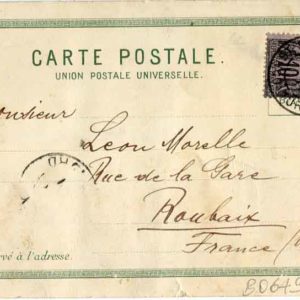 CARTE POSTALE.
UNION POSTALE UNIVERSELLE.
onsieur
Leon Morelle
Rue de la Gare
Roubaix
France
rvé à l'adresse.